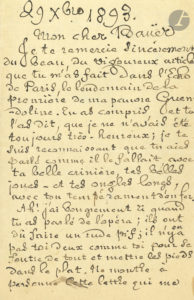 29 Xbre 1893.
Mon cher Bauër
Je te remercie sincèrement
du beau, du vigoureux article
que tu m'as fait dans l'Echo
de Paris, le lendemain de la
première de ma pauvre Gwen-
doline. Tu as compris et tu
l'as dit, que je n'avais été
toujours très heureux; je te
suis reconnaissant que tu aies
parlé comme il le fallait avec
ta belle crinière, tes belles
joues et tes ongles longs,
avec ton tempérament enfin
Ah! j'ai longuement ri quand
tu as parlé de l'opéra; ils ont
dû faire un rude nez, il n'y a
pas toi deux comme toi pour se
foutre de tout et mettre les pieds
dans le plat. Ne montre à
personne cette lettre qui me